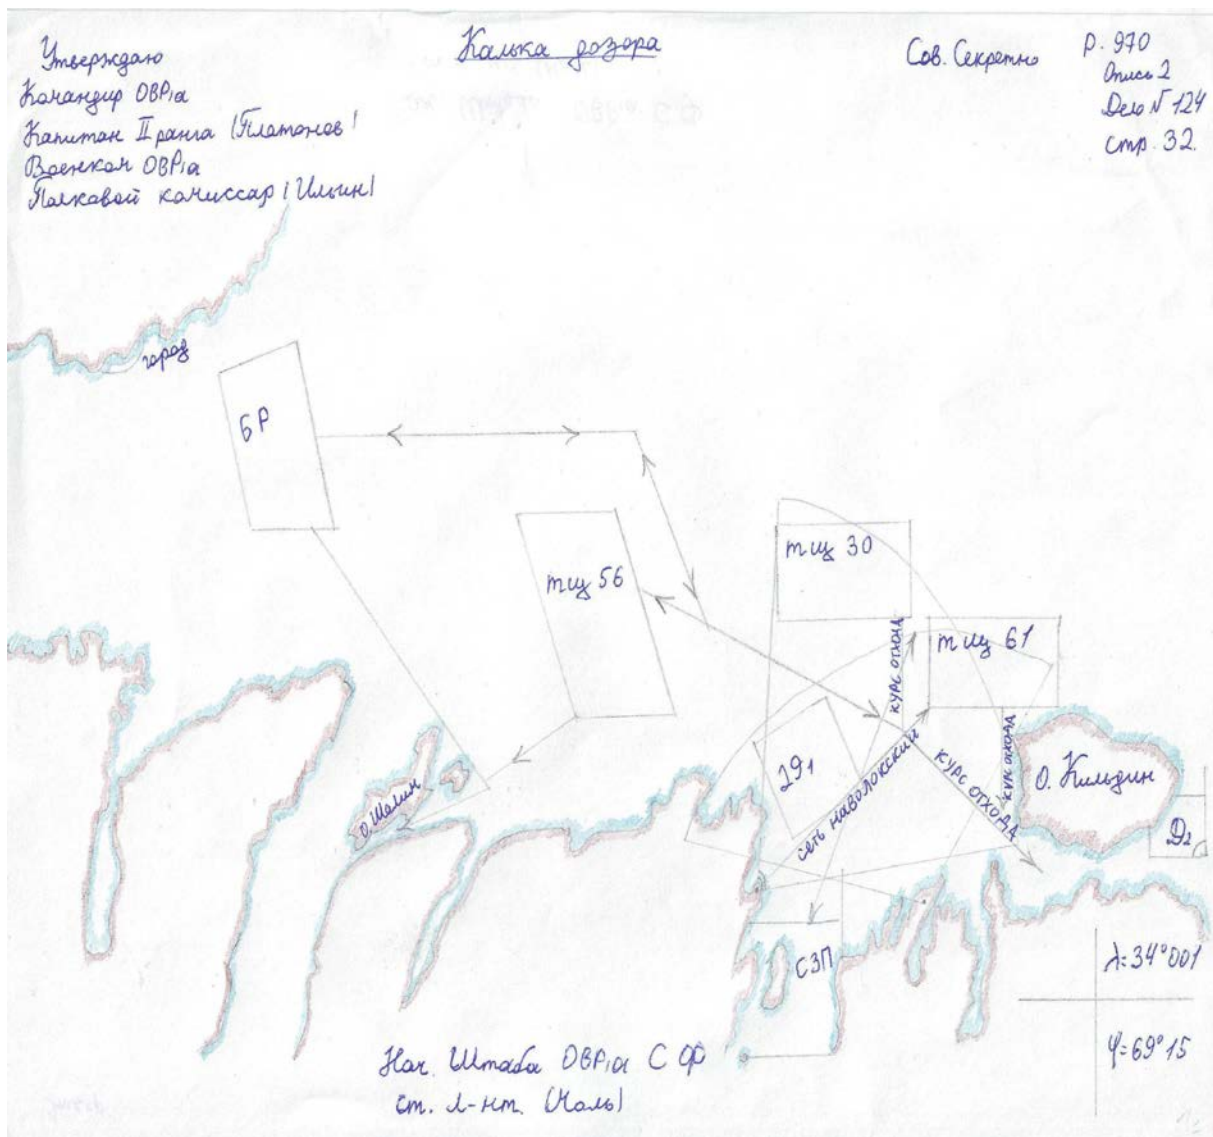 Утверждаю
Командир ОВР,а
Капитан II ранга (Платонов)
Военком ОВР,а
Полковой комиссар (Ильин)
Калька дозора
Сов. Секретно
Р. 970
Опись 2
Дело № 124
стр. 32.
город
БР
тщ 56
тщ 30
тщ 61
КУРС ОТХОДА
КУРС ОТХОДА
КУРС ОТХОДА
сеть наволокский
о. Шалим
о. Кильдин
Д2
СЗП
λ=34°001
φ=69°15
Нач. Штаба ОВР,а С Ф
ст. л-нт.